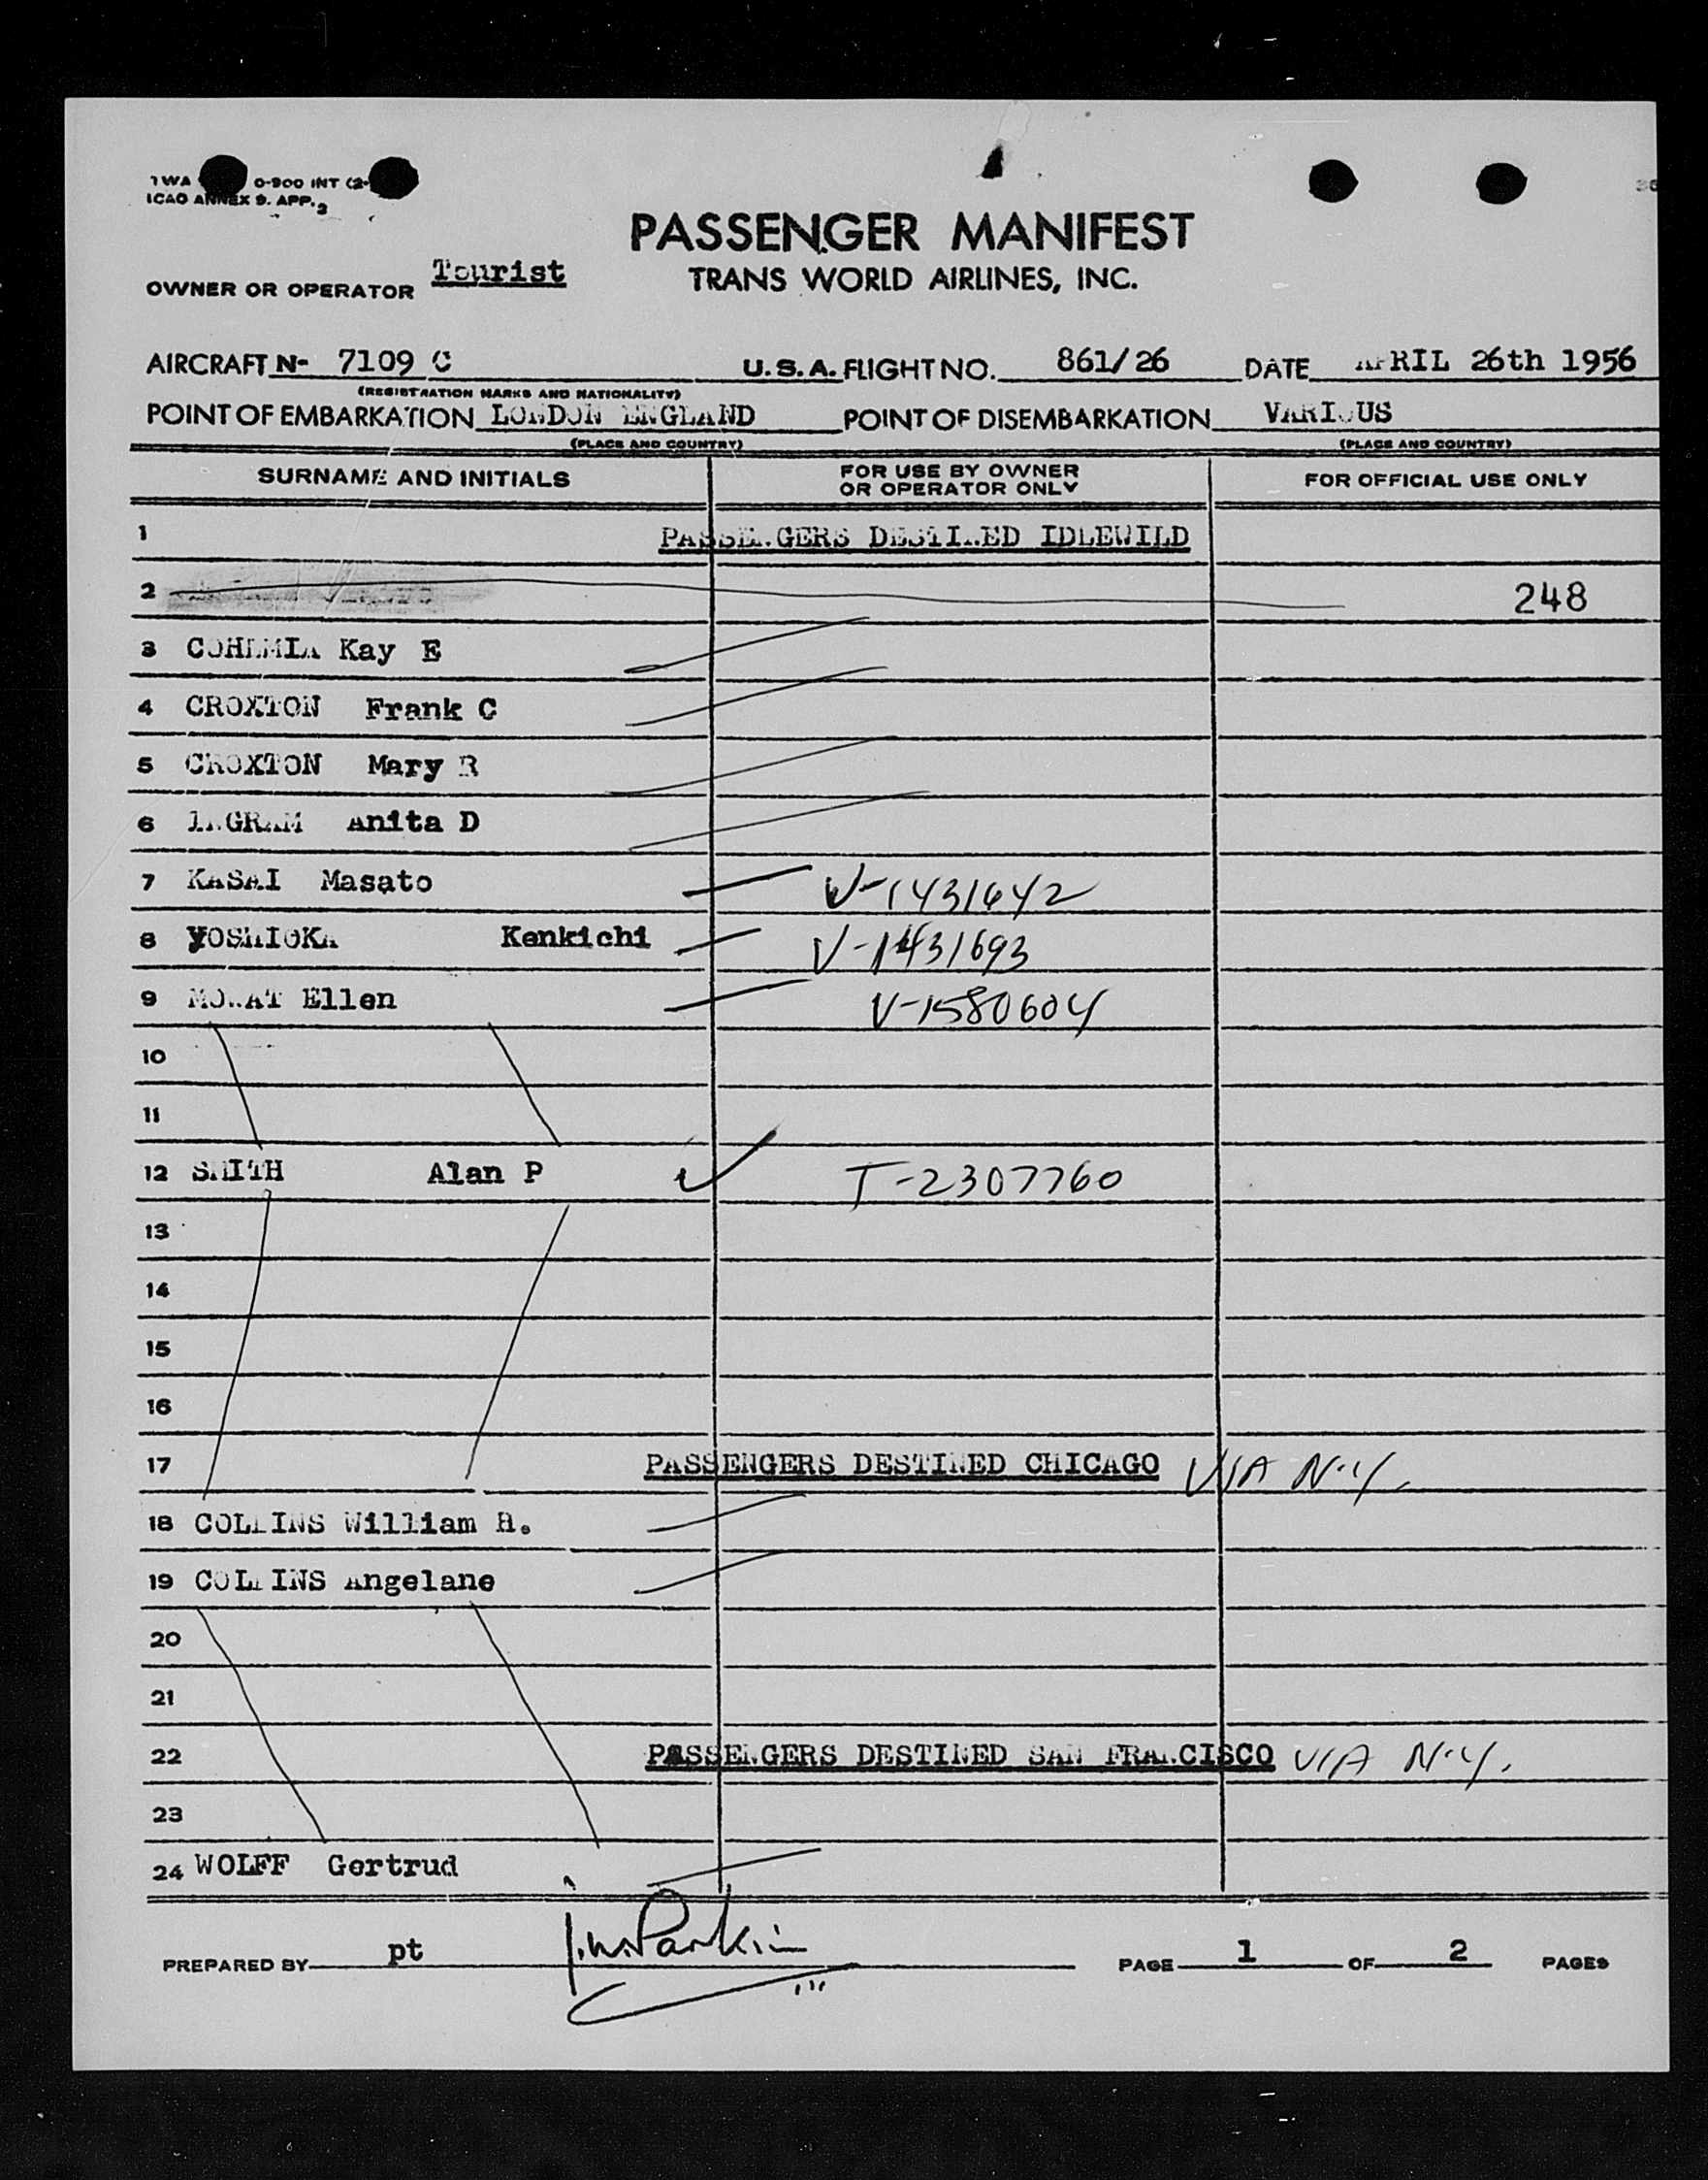 TWA 0-900 INT (2-
ICAO ANNEX 9. APP. 2
PASSENGER MANIFEST
OWNER OR OPERATOR Tourist TRANS WORLD AIRLINES, INC.
AIRCRAFT N- 7109 C U.S.A. FLIGHT NO. 861/26 DATE APRIL 26th 1956
(REGISTRATION MARKS AND NATIONALITY)
POINT OF EMBARKATION LONDON ENGLAND POINT OF DISEMBARKATION VARIOUS
(PLACE AND COUNTRY) (PLACE AND COUNTRY)
SURNAME AND INITIALS FOR USE BY OWNER OR OPERATOR ONLY FOR OFFICIAL USE ONLY
1 PASSENGERS DESTINED IDLEWILD
2 248
3 Kay E
4 CROXTON Frank C
5 CROXTON Mary R
6 INGRAM Anita D
7 KASAI Masato V-1431642
8 YOSHIOKA Kenkichi V-1431693
9 MOWAT Ellen V-1580604
10
11
12 SMITH Alan P T-2307760
13
14
15
16
17 PASSENGERS DESTINED CHICAGO VIA N.Y.
18 COLLINS William H.
19 COLLINS Angelane
20
21
22 PASSENGERS DESTINED SAN FRANCISCO VIA N.Y.
23
24 WOLFF Gertrud
PREPARED BY pt J.W. Parkin PAGE 1 OF 2 PAGES